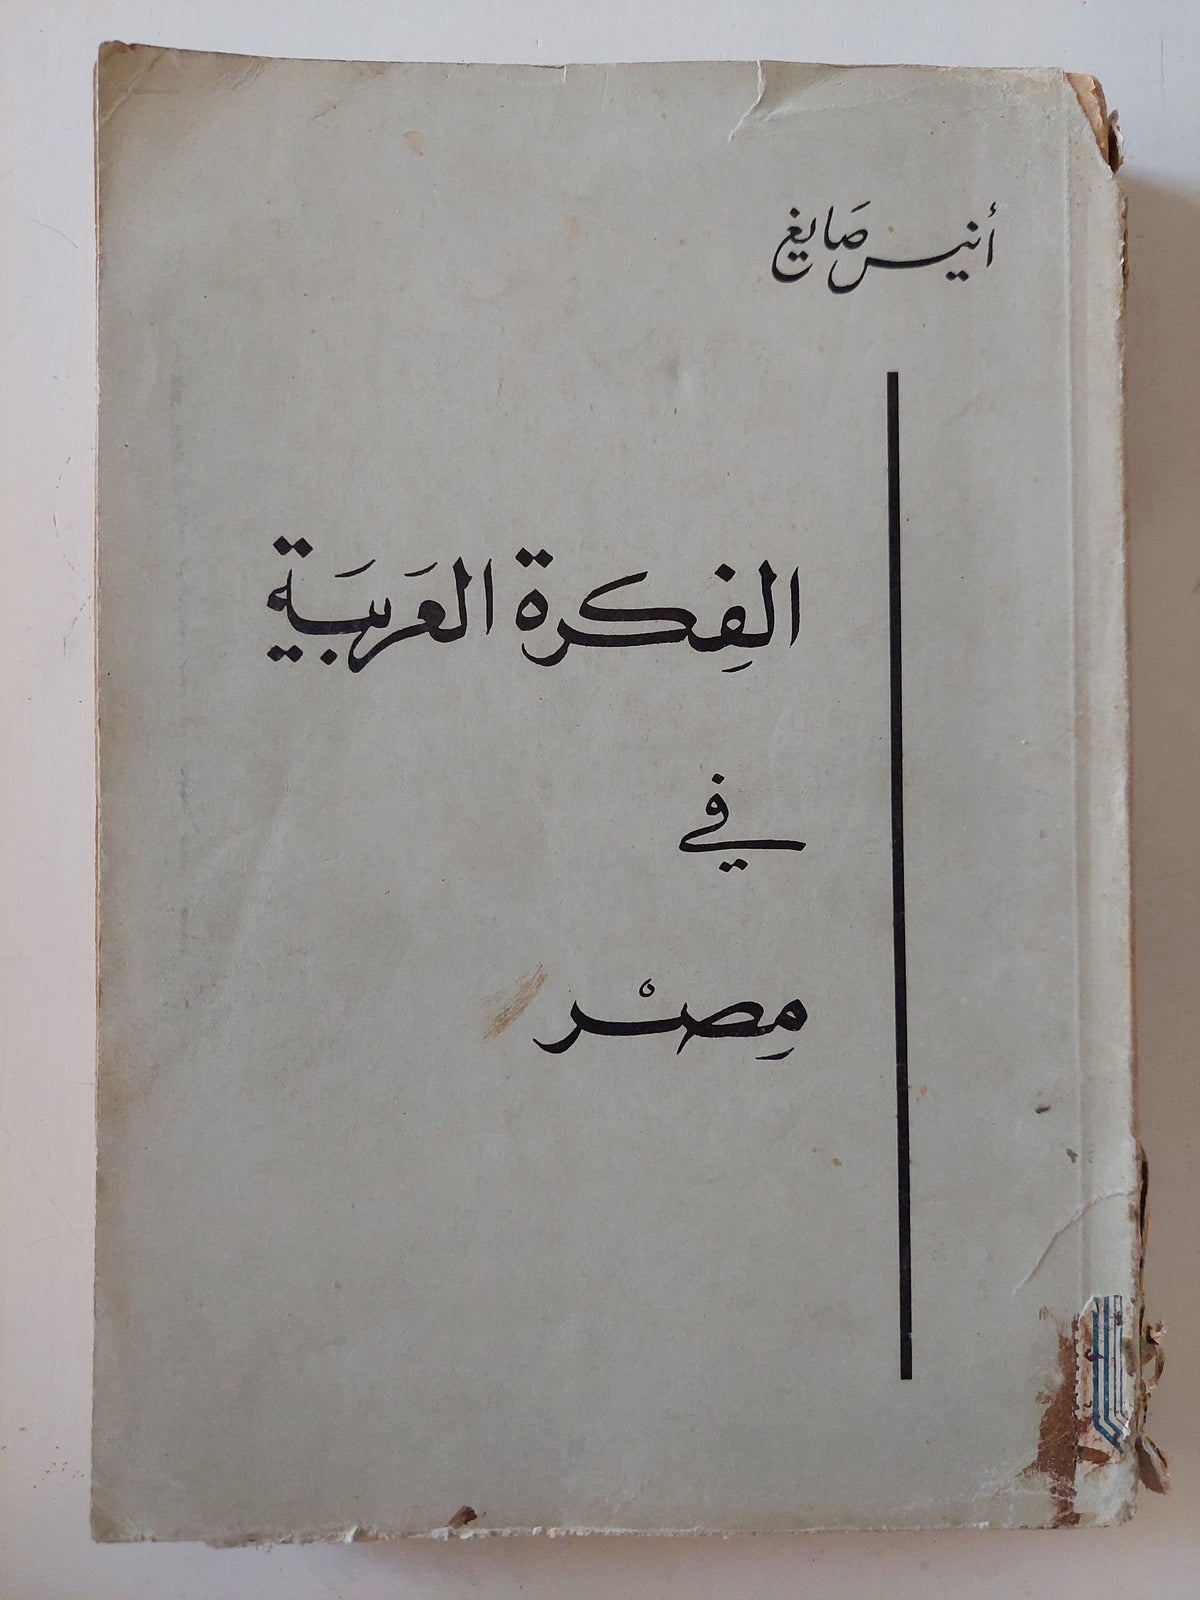 أنيس صَايغ
الفِكرة العَربيَة
في
مِصْر